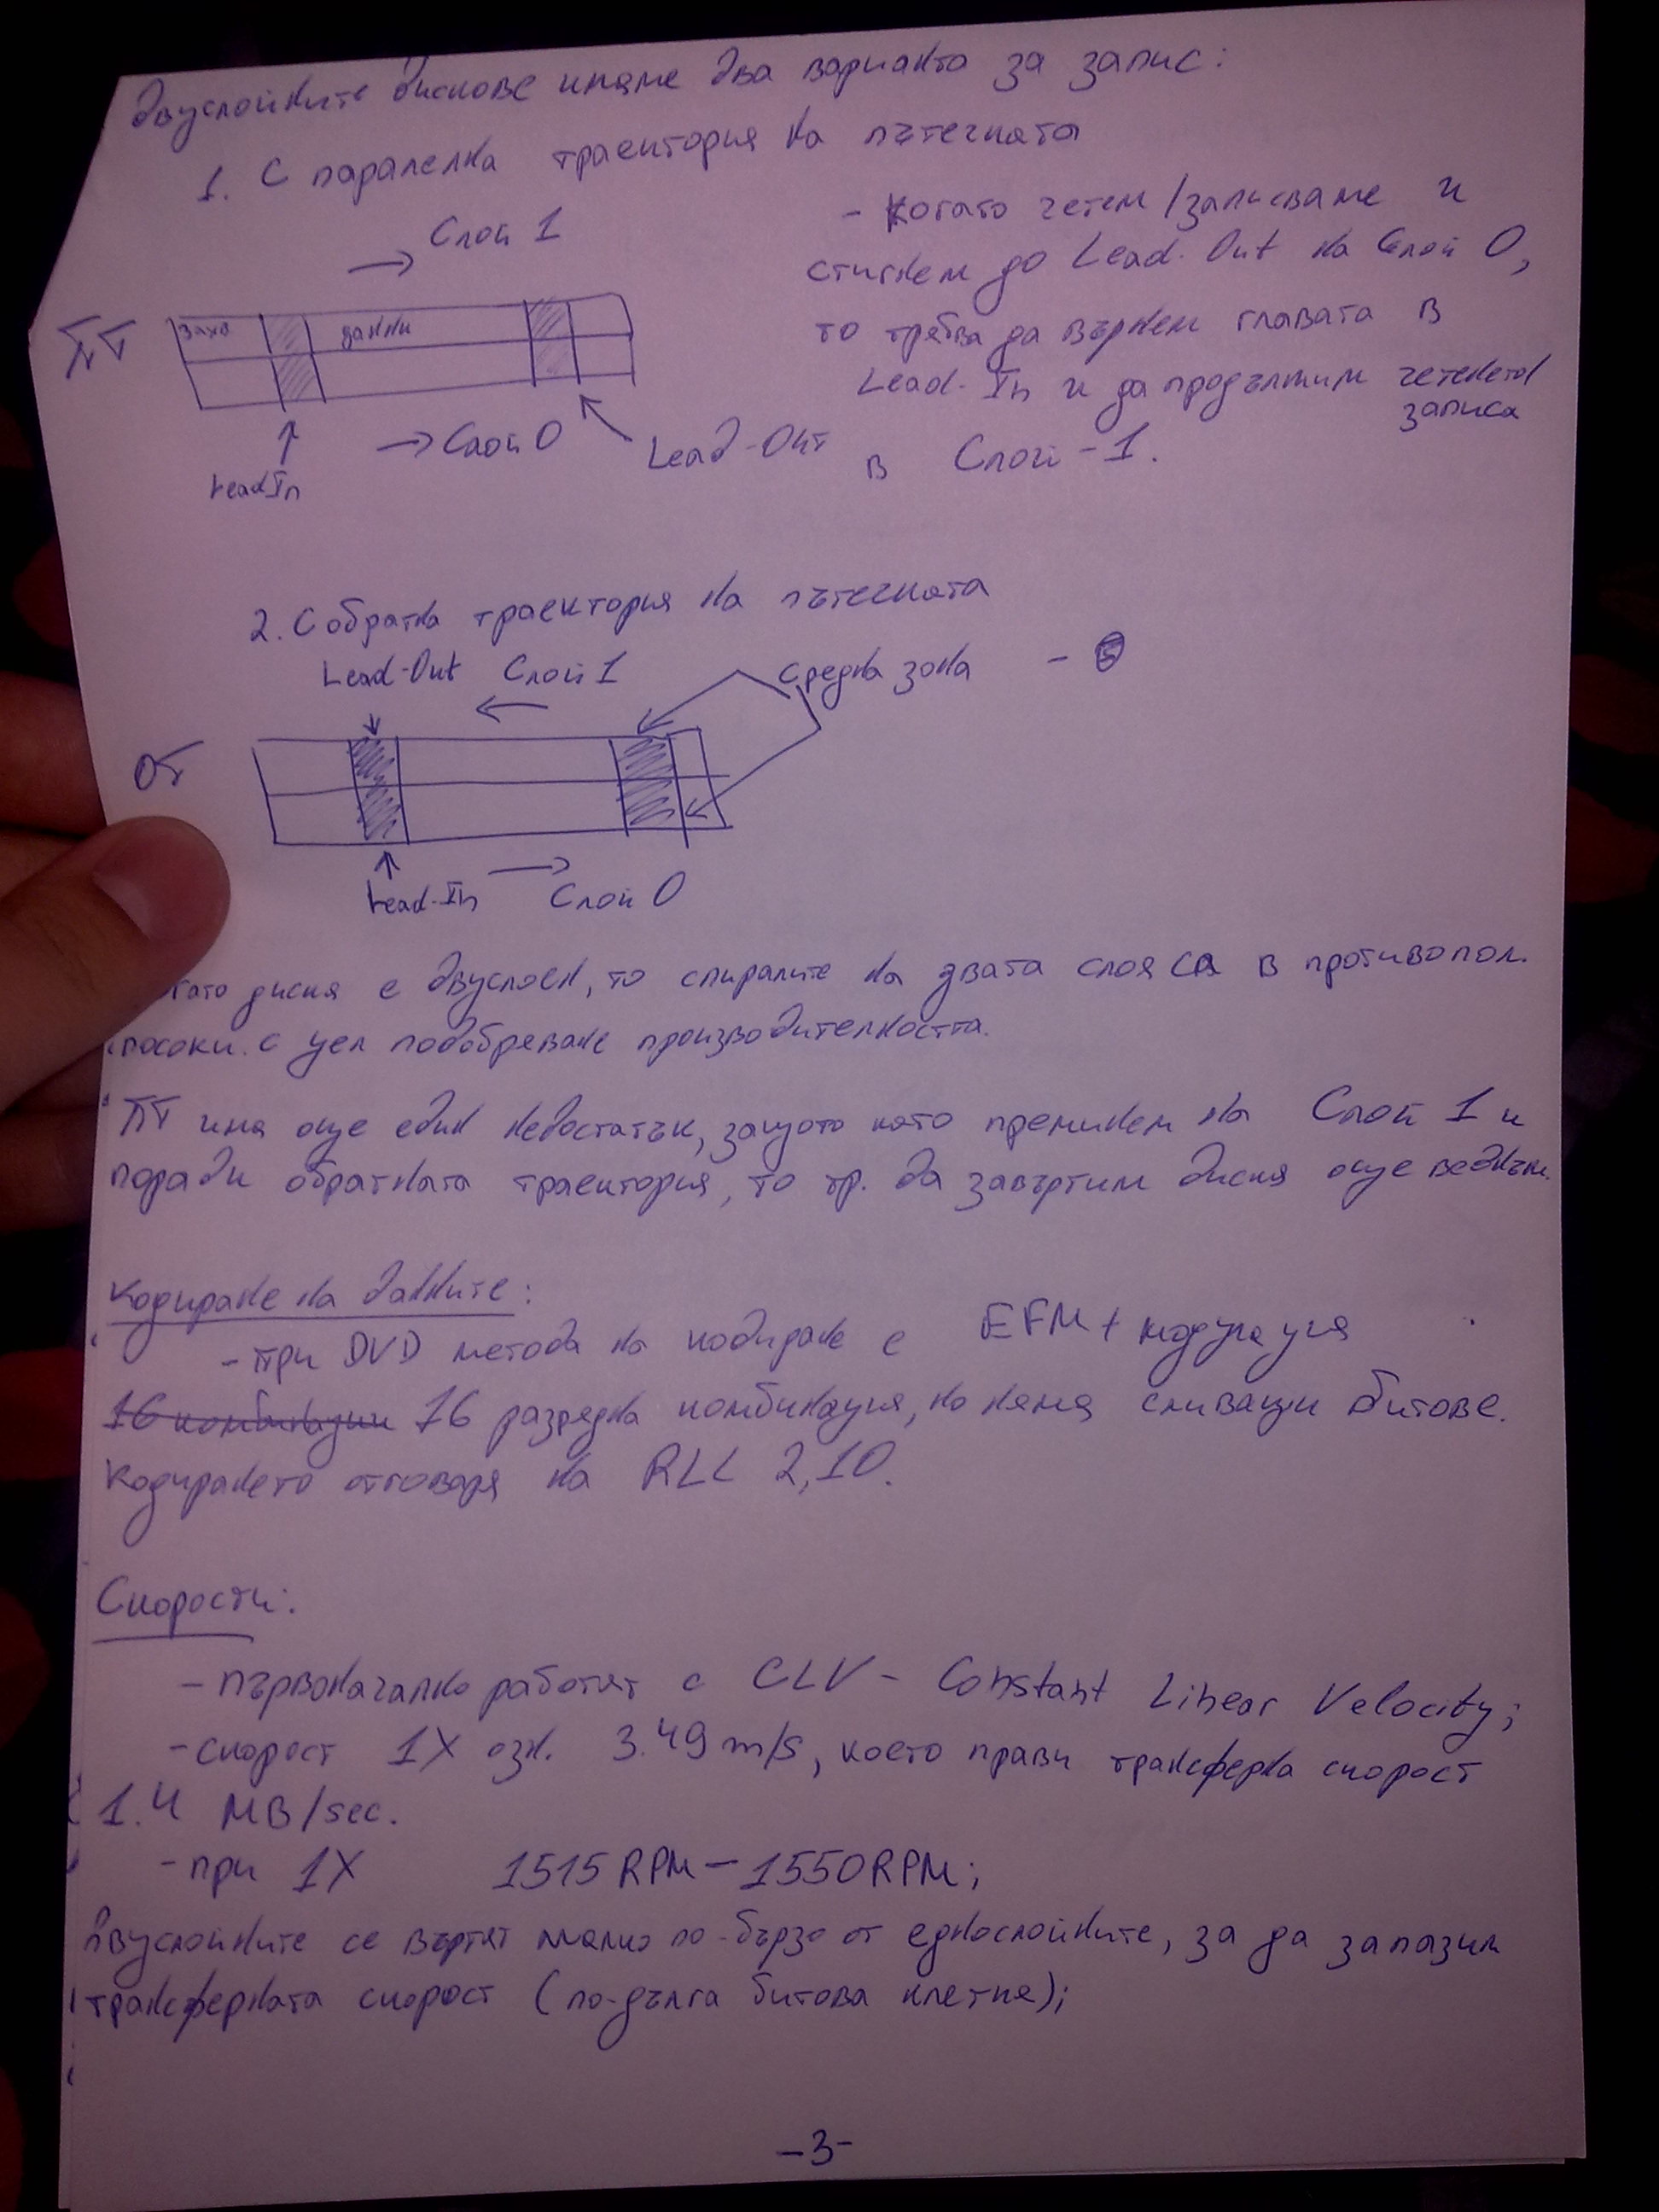 Двуслойните дискове имаме два варианта за запис:
1. С паралелна траектория на пътечката
- Когато четем/записваме и
стигнем до Lead-Out на Слой 0,
то трябва да върнем главата в
Lead-In и да продължим четенето/
записа
в Слой-1.
→ Слой 1
ПТ
захв
данни
→ Слой 0
Lead-Out
Lead In
2. С обратна траектория на пътечката
Lead-Out Слой 1
средна зона -
ОТ
Lead-In Слой 0
гато диска е двуслоен, то спиралите на двата слоя са в противопол.
посоки с цел подобряване производителността.
ПТ има още един недостатък, защото като преминем на Слой 1 и
поради обратната траектория, то тр. да завъртим диска още веднъж.
Кодиране на данните:
- при DVD метода на кодиране е EFM+ модулация
16 комбинации 16 разредна комбинация, но няма сливащи битове.
Кодирането отговаря на RLL 2,10.
Скорости:
- първоначално работят с CLV - Constant Linear Velocity;
- скорост 1X озн. 3.49 m/s, което прави трансферна скорост
1.4 MB/sec.
- при 1X 1515 RPM - 1550 RPM;
Двуслойните се въртят малко по-бързо от еднослойните, за да запазим
трансферната скорост (по-дълга битова клетка);
-3-